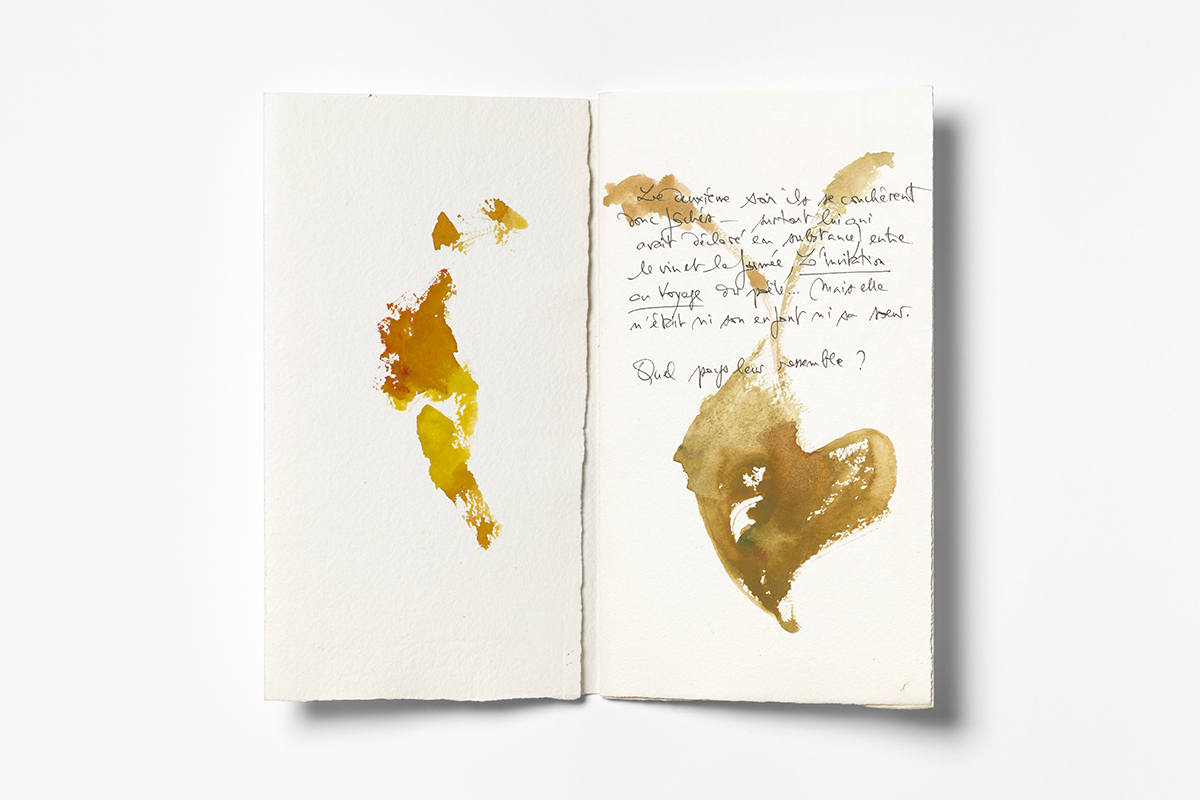 Le deuxième soir ils se couchèrent
donc fâchés – surtout lui qui
avait déclaré en substance, entre
le vin et la fumée L'Invitation
au Voyage du poète... Mais elle
n'était ni son enfant ni sa sœur.
Quel pays leur ressemble ?